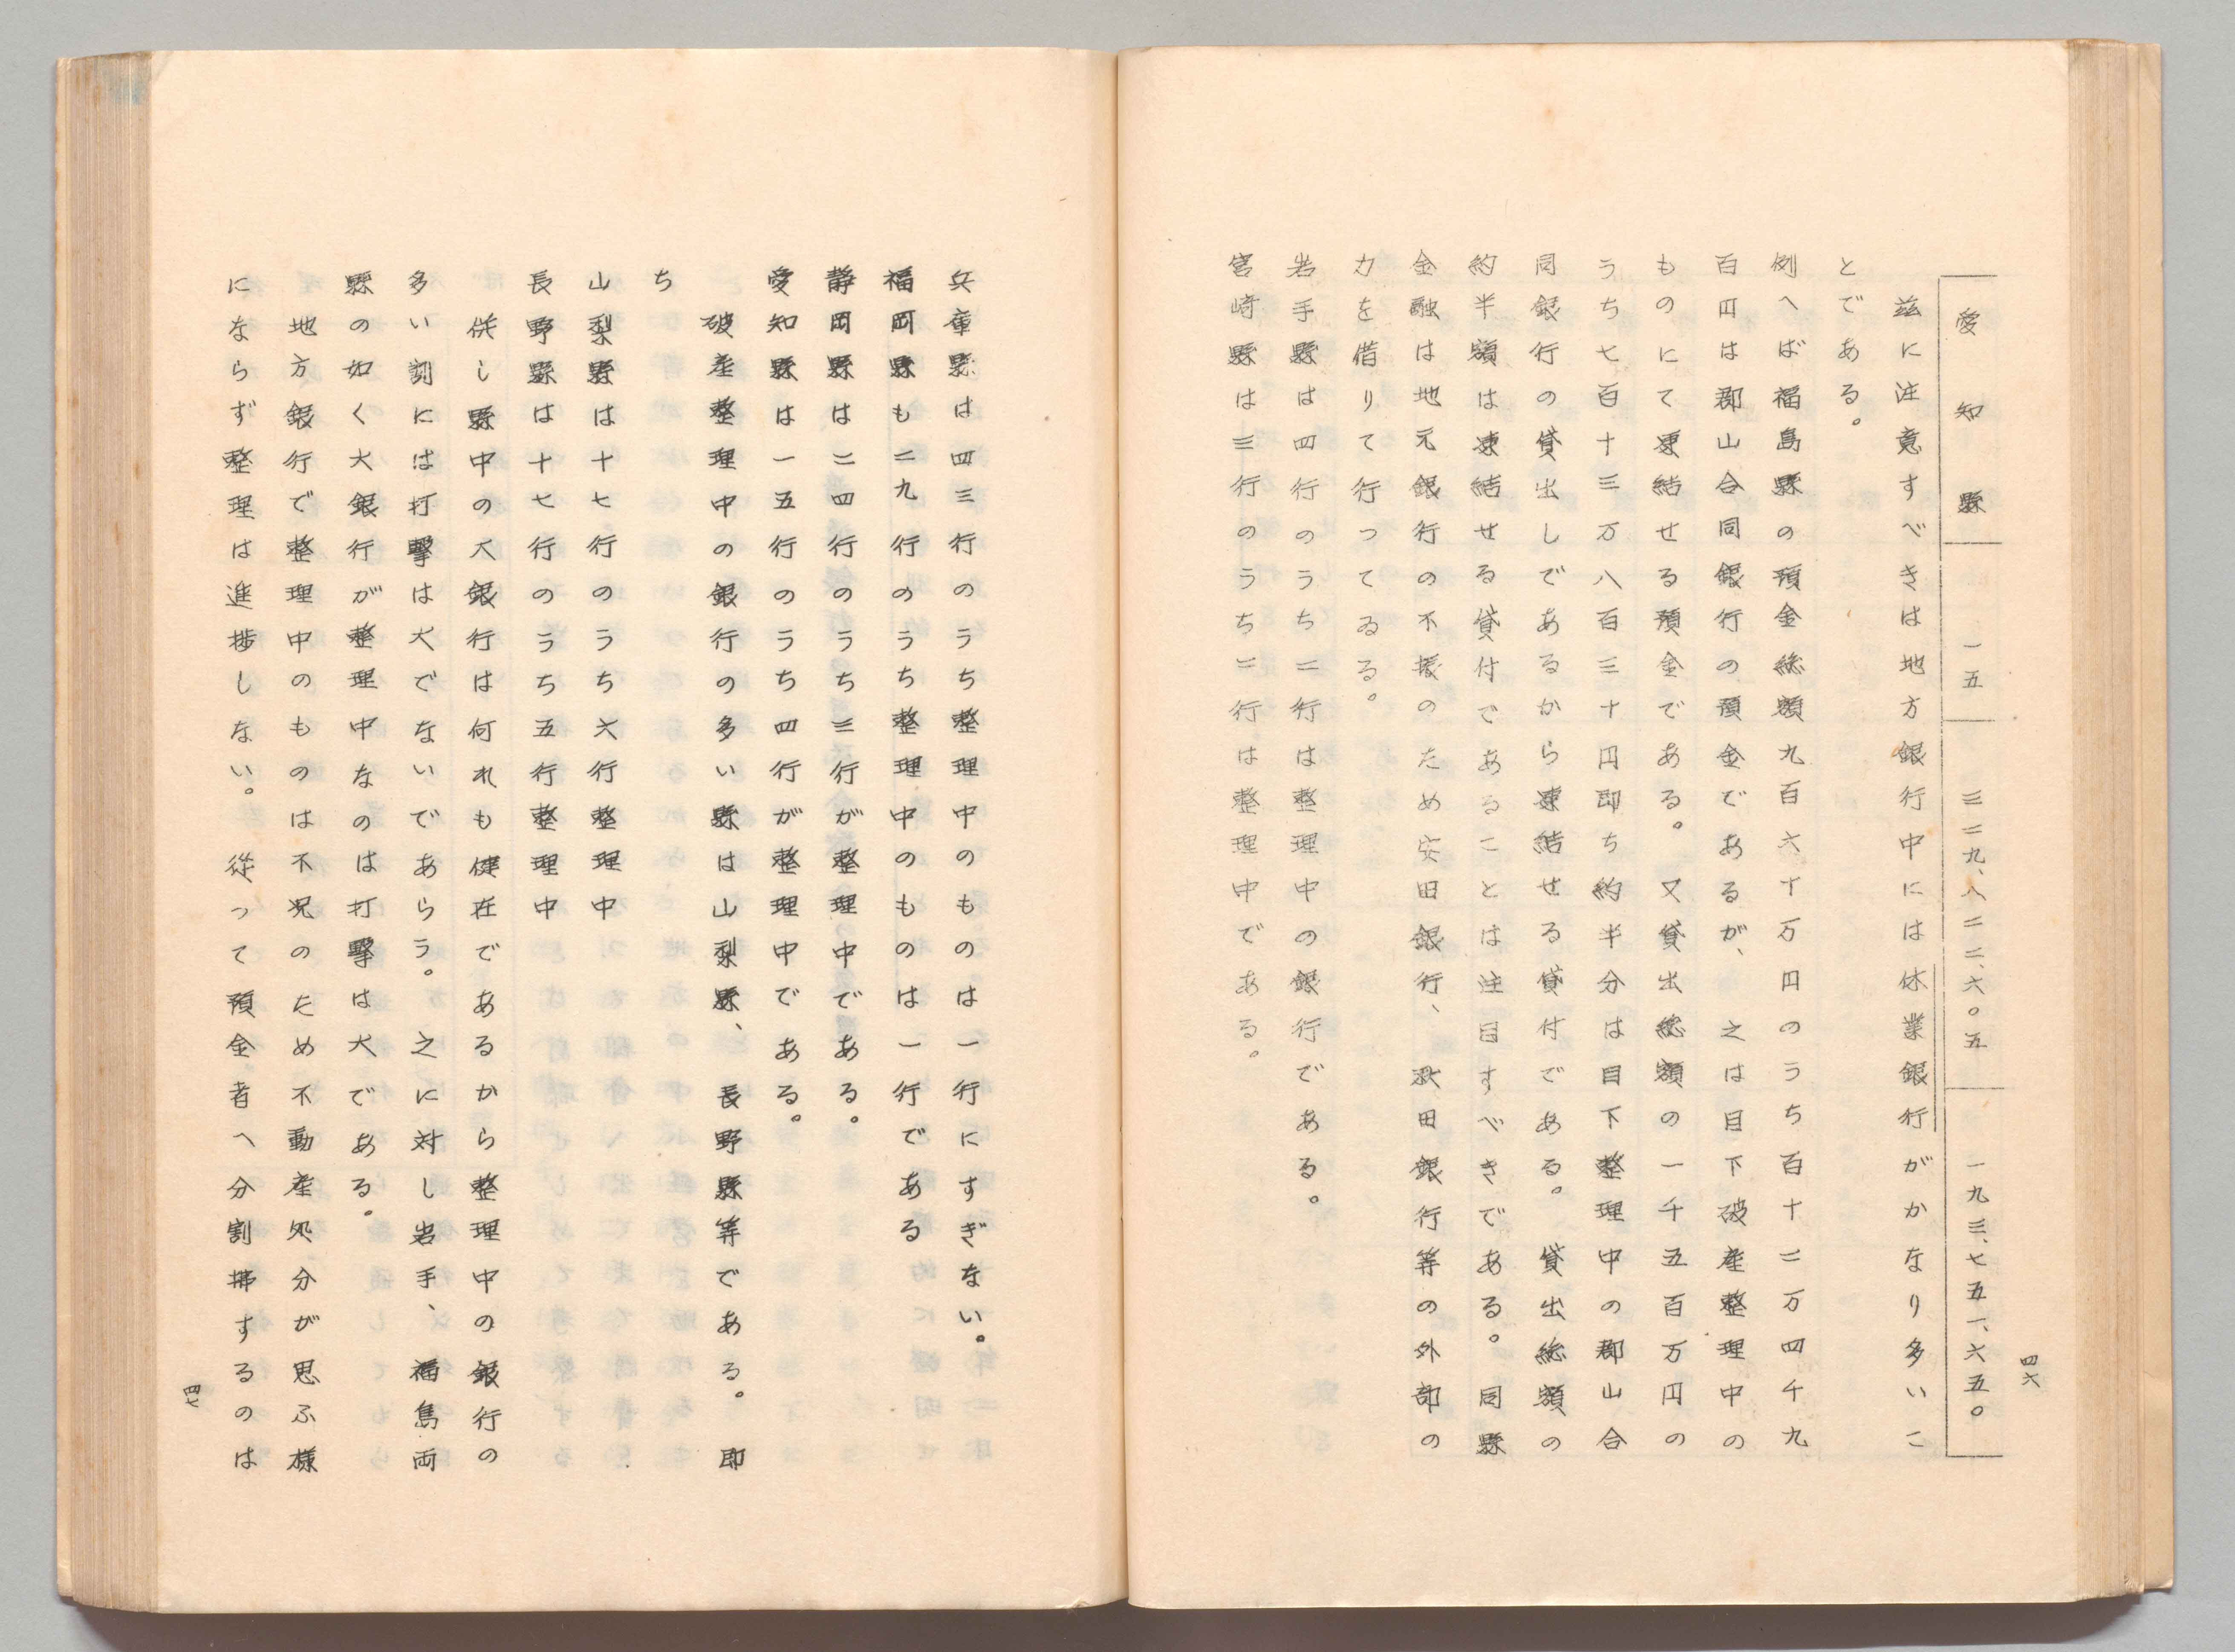 四六
愛知縣 一五 三二九、八二二、六〇五 一九三、七五一、六五〇
茲に注意すべきは地方銀行中には休業銀行がかなり多いこ
とである。
例へば福島縣の預金総額九百六十万円のうち百十二万四千九
百円は郡山合同銀行の預金であるが、之は目下破産整理中の
ものにて凍結せる預金である。又貸出総額の一千五百万円の
うち七百十三万八百三十円即ち約半分は目下整理中の郡山合
同銀行の貸出しであるから凍結せる貸付である。貸出総額の
約半額は凍結せる貸付であることは注目すべきである。同縣
金融は地元銀行の不振のため安田銀行、秋田銀行等の外部の
力を借りて行ってゐる。
岩手縣は四行のうち二行は整理中の銀行である。
宮崎縣は三行のうち二行は整理中である。
兵庫縣は四三行のうち整理中のものは一行にすぎない。
福岡縣も二九行のうち整理中のものは一行である
静岡縣は二四行のうち三行が整理中である。
愛知縣は一五行のうち四行が整理中である。
破産整理中の銀行の多い縣は山梨縣、長野縣等である。即
ち
山梨縣は十七行のうち六行整理中
長野縣は十七行のうち五行整理中
併し縣中の大銀行は何れも健在であるから整理中の銀行の
多い割には打撃は大でないであらう。之に対し岩手、福島両
縣の如く大銀行が整理中なのは打撃は大である。
地方銀行で整理中のものは不況のため不動産処分が思ふ様
にならず整理は進捗しない。従って預金者へ分割拂するのは
四七